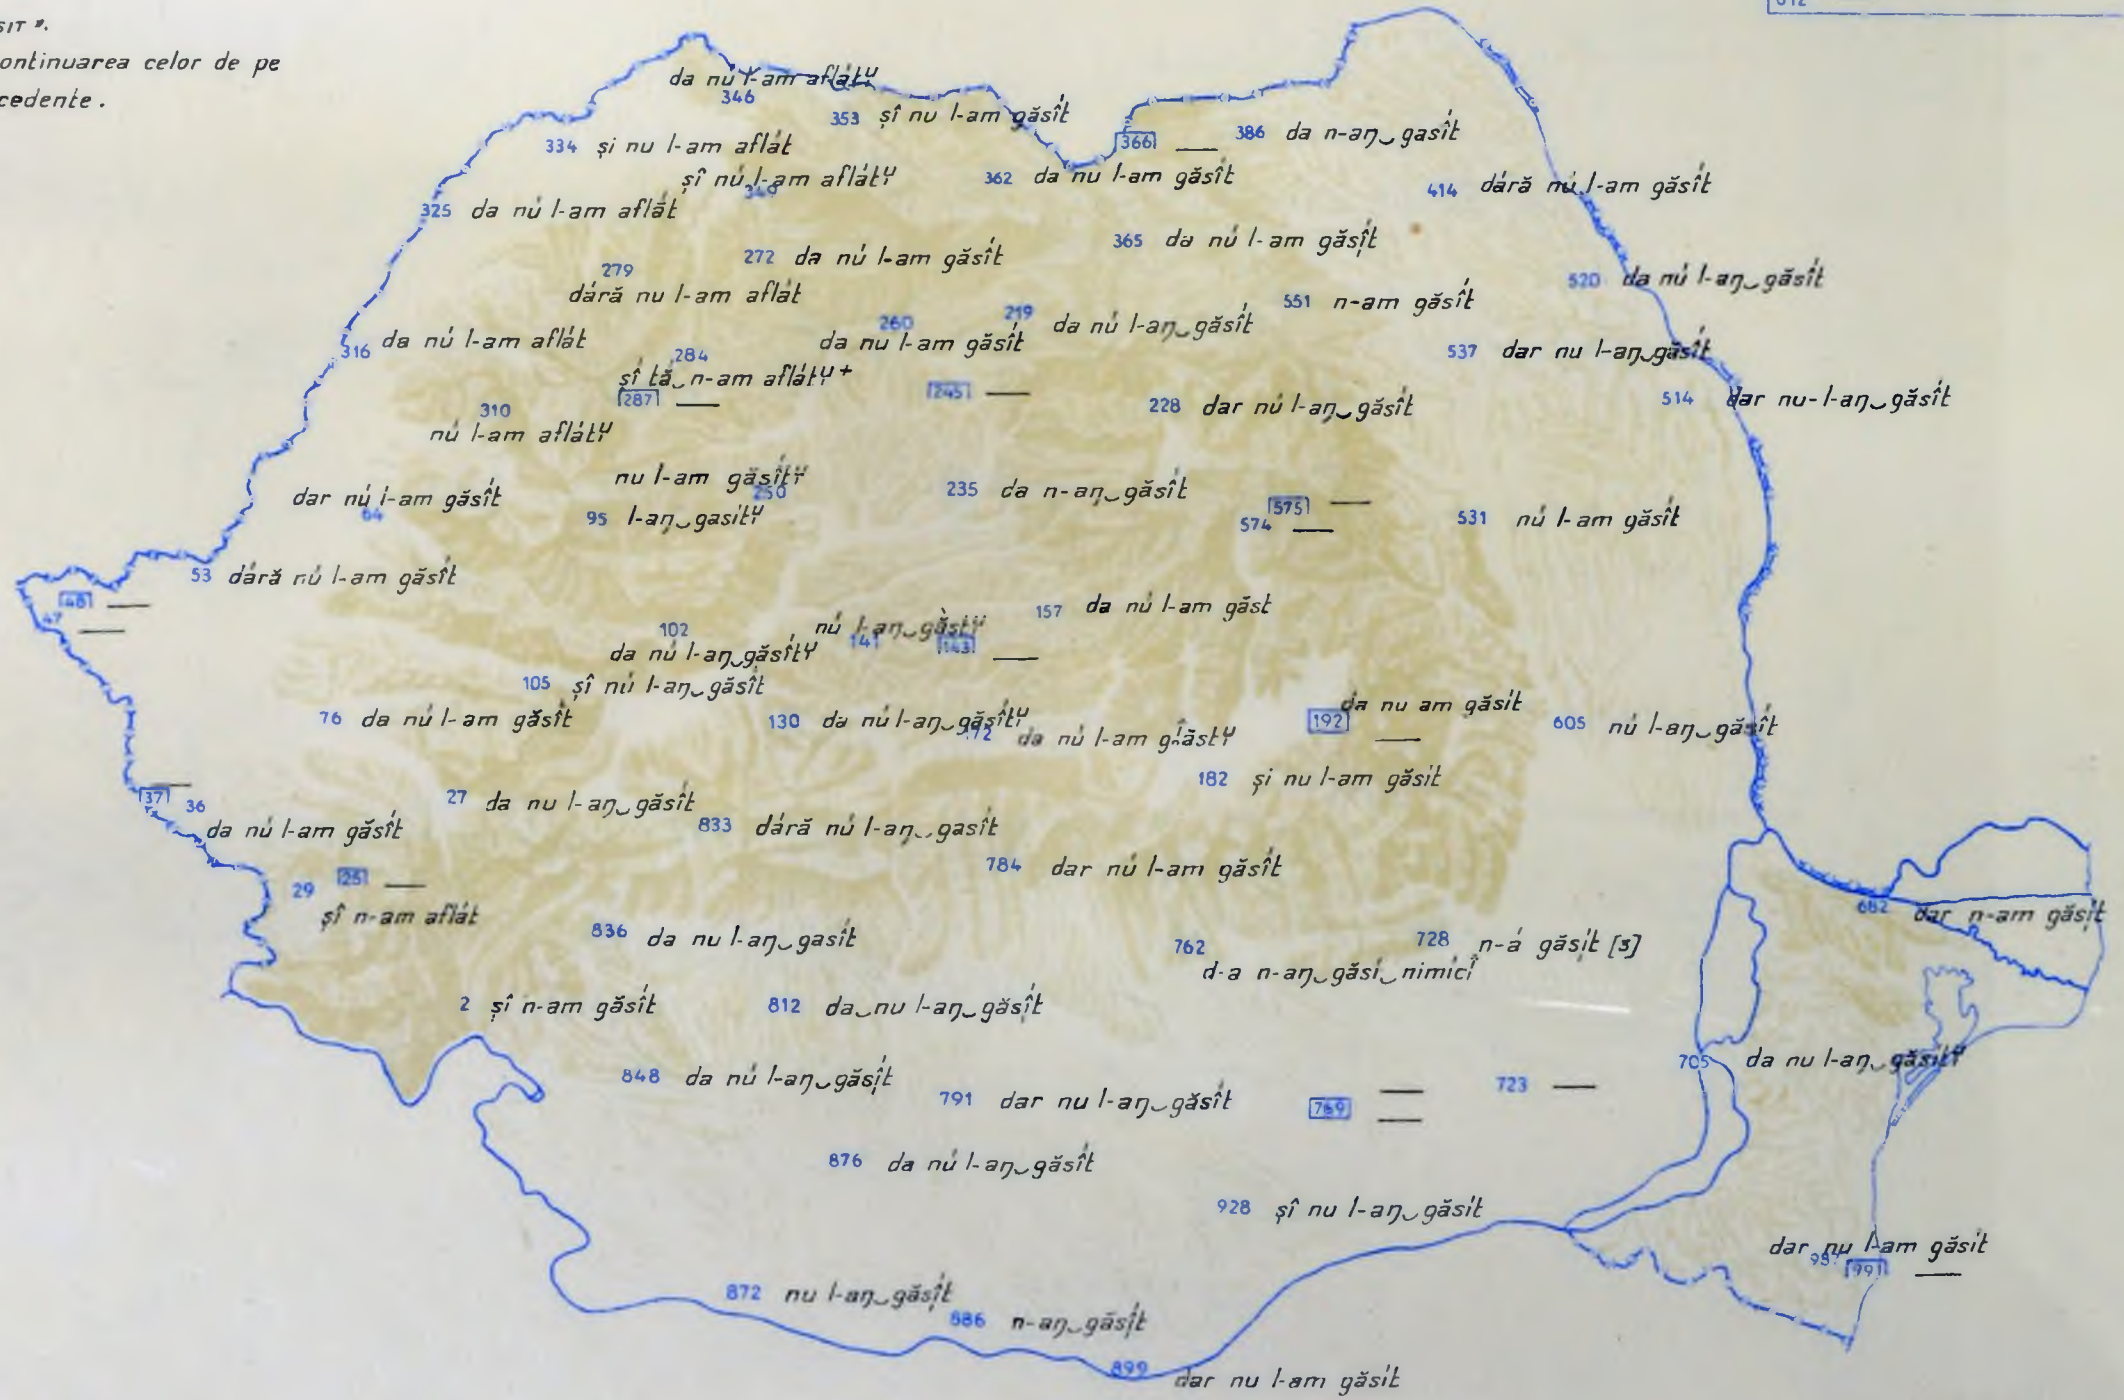 SIT".
ontinuarea celor de pe
cedente.
612
da nú l-am aflátʸ
346
353 șî nu l-am găsî́t
366 —
386 da n-aŋ‿gasî́t
334 și nu l-am aflát
șî nú l-am aflátʸ
349
362 da nu l-am găsî́t
414 dáră nú l-am găsî́t
325 da nú l-am aflát
365 da nú l-am găsî́t
272 da nú l-am găsî́t
279
dáră nu l-am aflát
520 da nú l-aŋ‿găsî́t
551 n-am găsî́t
219 da nú l-aŋ‿găsî́t
260
da nu l-am găsî́t
316 da nú l-am aflát
537 dar nu l-aŋ‿găsî́t
284
șî tắ‿n-am aflátʸ+
287 —
245 —
228 dar nú l-aŋ‿găsî́t
514 dar nu-l-aŋ‿găsî́t
310
nú l-am aflátʸ
nu l-am găsî́tʸ
250
235 da n-aŋ‿găsî́t
dar nú l-am găsî́t
64
95 l-aŋ‿gasítʸ
575 —
574 —
531 nú l-am găsî́t
53 dáră nú l-am găsî́t
48 —
47 —
157 da nú l-am găst
nú l-aŋ‿gằstʸ
141
143 —
102
da nú l-aŋ‿găsî́tʸ
105 șî nú l-aŋ‿găsî́t
76 da nú l-am găsî́t
130 da nú l-aŋ‿găsî́tʸ
172 da nú l-am găstʸ
da nu am găsít
192 —
605 nú l-aŋ‿găsî́t
182 și nu l-am găsít
37 —
36
da nú l-am găsî́t
27 da nu l-aŋ‿găsî́t
833 dáră nú l-aŋ‿gasî́t
784 dar nú l-am găsî́t
25 —
29
șî n-am aflát
682 dar n-am găsî́t
836 da nu l-aŋ‿gasî́t
762
d-a n-aŋ‿găsí‿nimicĭ
728 n-á găsî́t [3]
2 șî n-am găsî́t
812 da‿nu l-aŋ‿găsî́t
705 da nu l-aŋ‿găsítʸ
848 da nú l-aŋ‿găsî́t
791 dar nu l-aŋ‿găsî́t
769 —
—
723 —
876 da nú l-aŋ‿găsî́t
928 șî nu l-aŋ‿găsít
dar nu l-am găsít
987
991 —
872 nu l-aŋ‿găsî́t
886 n-aŋ‿găsî́t
899 dar nu l-am găsít